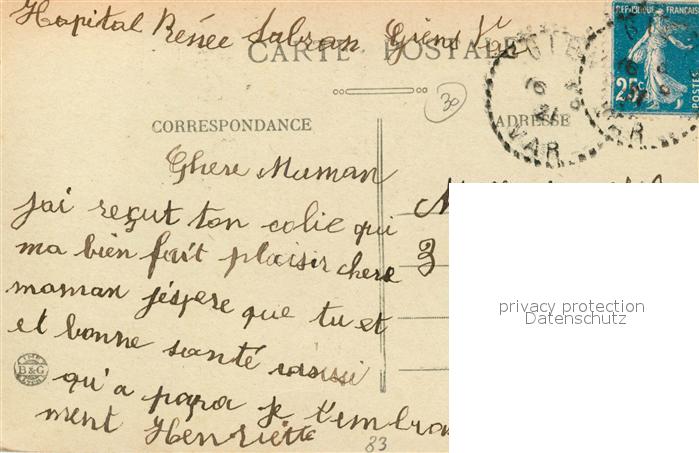 Hapital Renée Sabran Giens Var
CARTE POSTALE
REPUBLIQUE FRANÇAISE
25c
POSTES
GIENS
16
VAR
30
CORRESPONDANCE
ADRESSE
Chere Maman
jai reçut ton colie qui
ma bien fait plaisir chere
maman j'éspere que tu et
et bonne santé
qu'a papa je t'embra
ment Henriette
3
B&G
83
privacy protection
Datenschutz